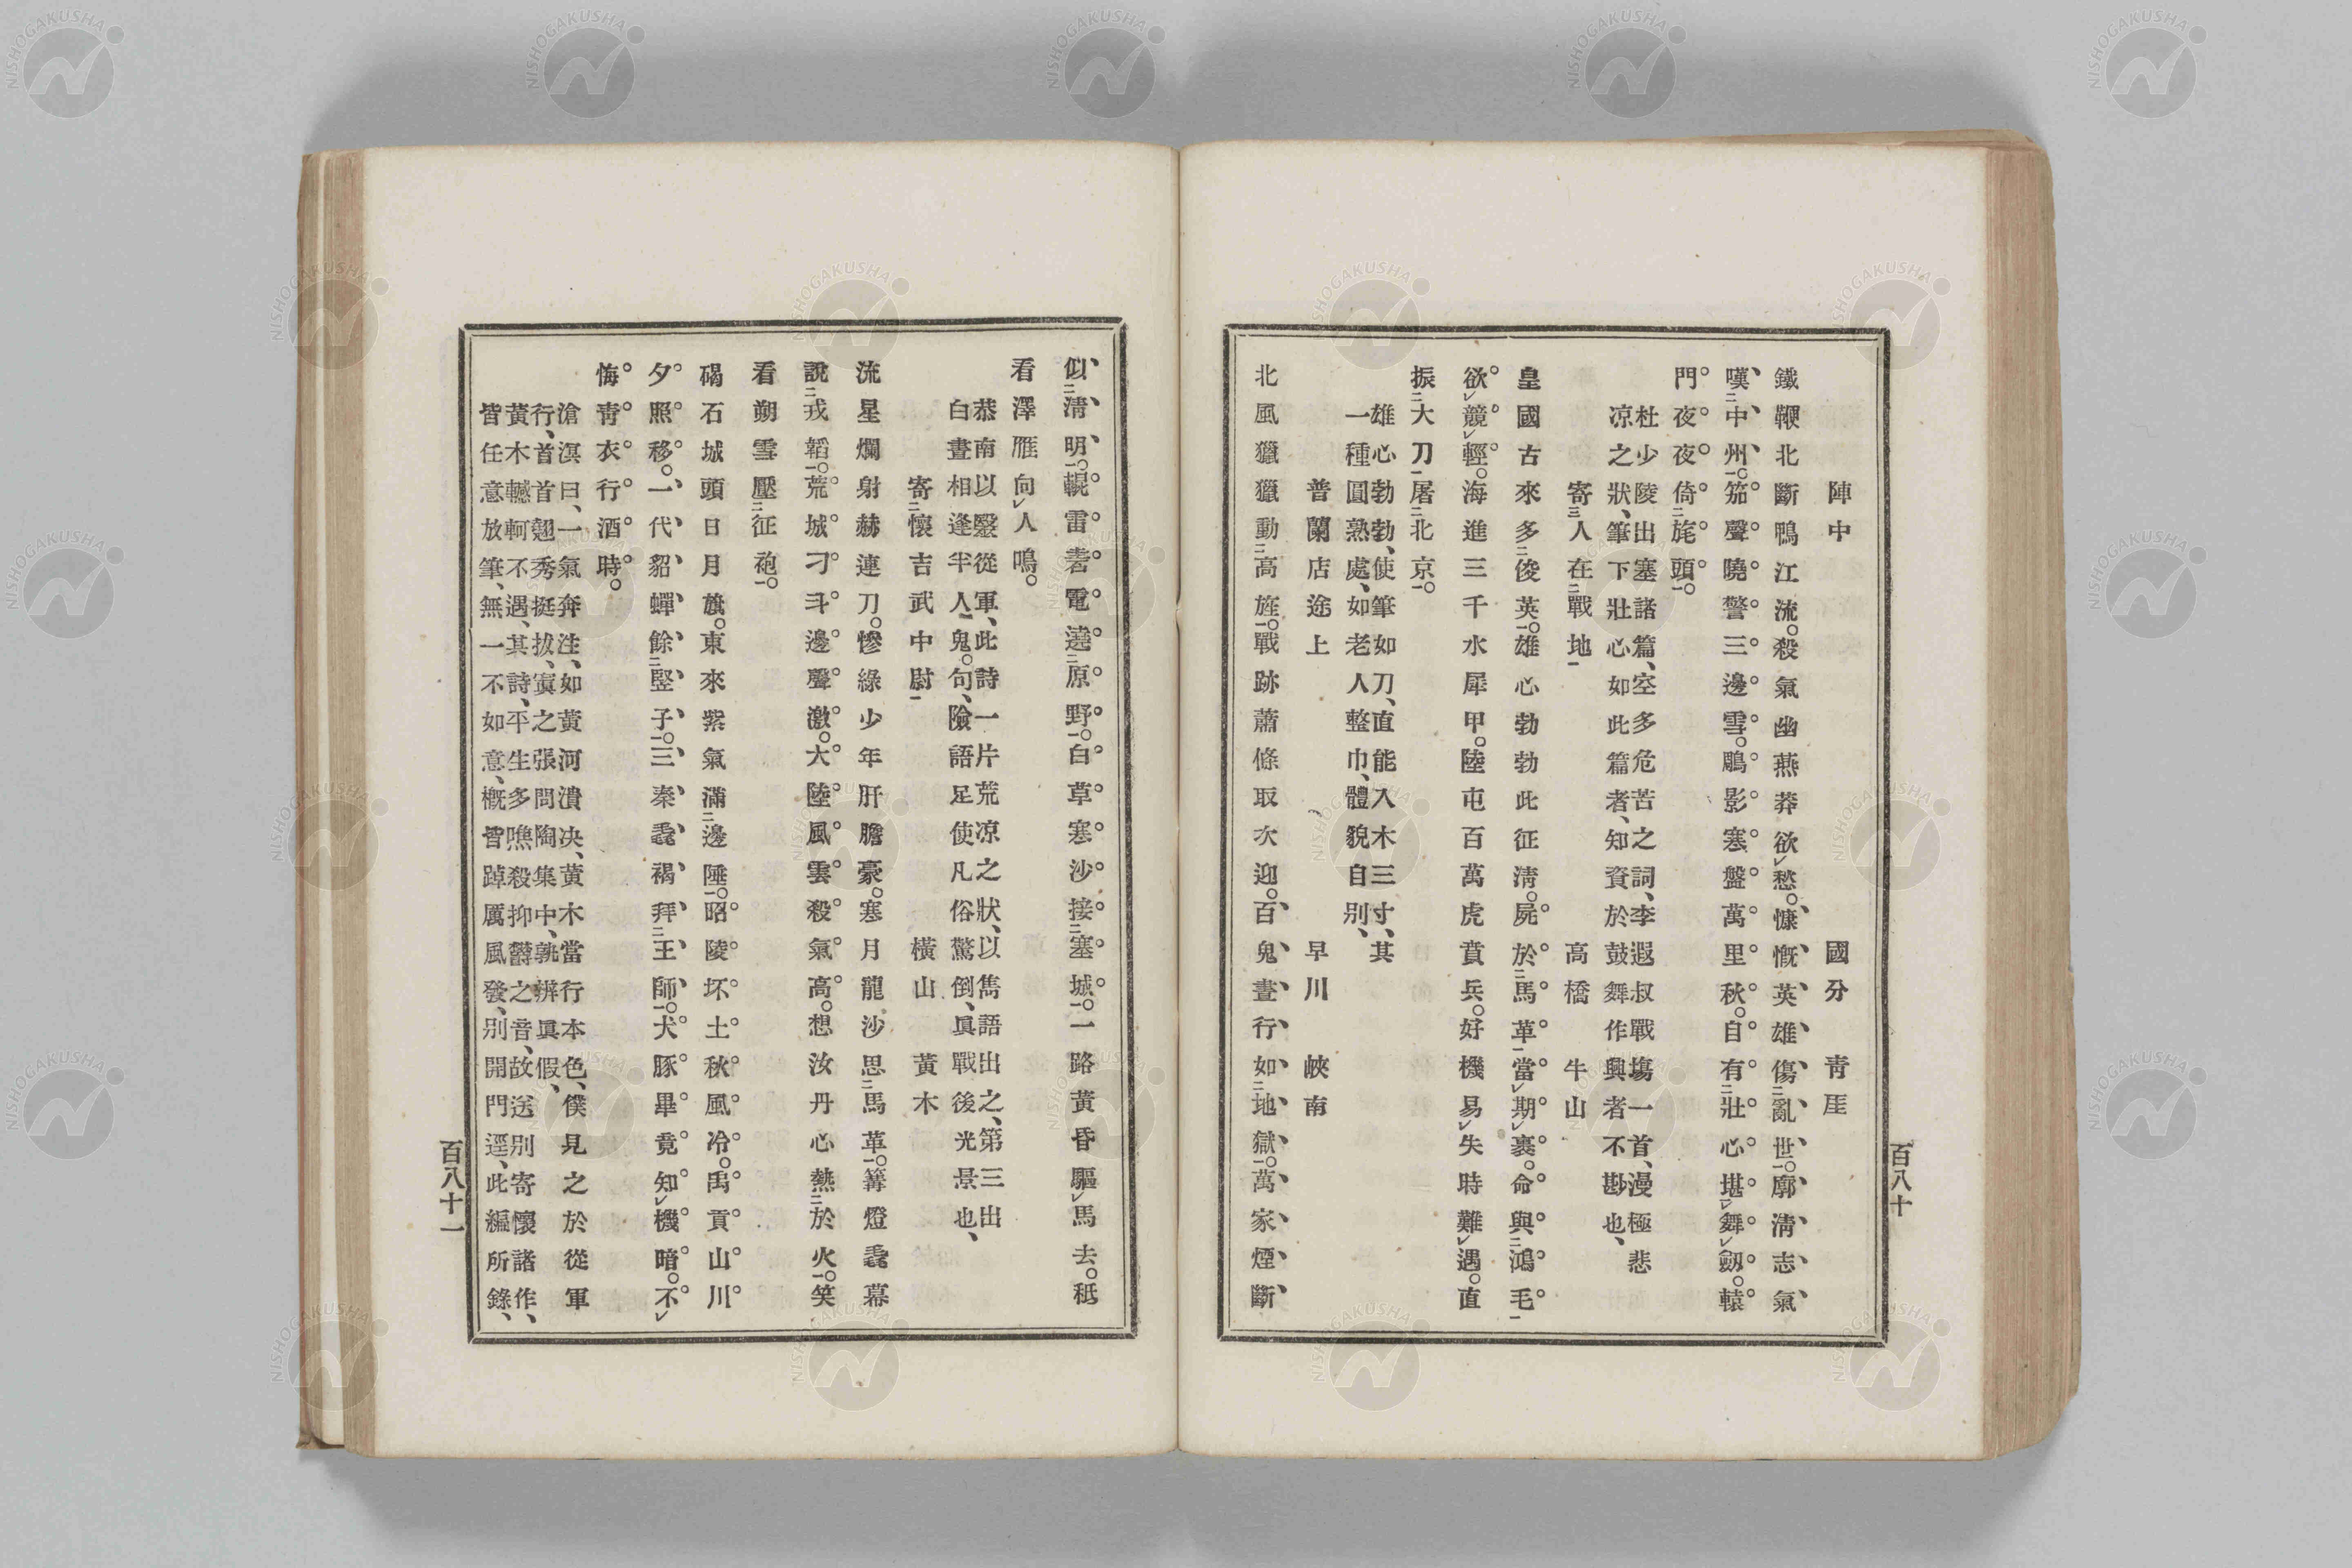 陣中 國分青厓
鐵鞭北斷鴨江流。殺氣幽燕莽欲レ愁。慷慨英雄傷二亂世一。廓淸志氣
嘆二中州一。笳聲曉警三邊雪。鵰影寒盤萬里秋。自有二壯心堪一レ舞レ劔。轅
門夜夜倚二旄頭一。
杜少陵出塞諸篇、空多危苦之詞、李遐叔戰塲一首、漫極悲
凉之狀、筆下壯心如此篇者、知資於鼓舞作興者不尠也、
寄三人在二戰地一 高橋牛山
皇國古來多二俊英一。雄心勃勃此征淸。屍於二馬革一當レ期レ裹。命與二鴻毛一
欲レ競レ輕。海進三千水犀甲。陸屯百萬虎賁兵。好機易レ失時難レ遇。直
振二大刀一屠二北京一。
雄心勃勃、使筆如刀、直能入木三寸、其
一種圓熟處、如老人整巾、體貌自别、
普蘭店途上 早川峽南
北風獵獵動二高旌一。戰跡蕭條取次迎。百鬼晝行如二地獄一。萬家煙斷
百八十
似二淸明一。輥雷砉電遶二原野一。白草寒沙接二塞城一。一路黃昏驅レ馬去。秪
看澤雁向レ人鳴。
恭南以毉從軍、此詩一片荒凉之狀、以雋語出之、第三出
白晝相逢半人鬼。句、險語足使凡俗驚倒、眞戰後光景也、
寄二懷吉武中尉一 横山黃木
流星爛射赫連刀。慘綠少年肝膽豪。塞月龍沙思二馬革一。篝燈毳幕
說二戎韜一。荒城刁斗邊聲激。大陸風雲殺氣高。想汝丹心熱二於火一。笑
看朔雪壓二征袍一。
碣石城頭日月旗。東來紫氣滿二邊陲一。昭陵坏土秋風冷。禹貢山川
夕照移。一代貂蟬餘二豎子一。三秦毳褐拜二王師一。犬豚畢竟知レ機暗。不レ
悔靑衣行酒時。
滄溟曰、一氣奔注、如黃河潰决、黃木當行本色、僕見之於從軍
行、首首翹秀挺拔、寘之張問陶集中、孰辨眞假、
黃木轗軻不遇、其詩、平生多噍殺抑欝之音、故送别寄懷諸作、
皆任意放筆、無一不如意、槪皆踔厲風發、別開門逕、此編所錄、
百八十一